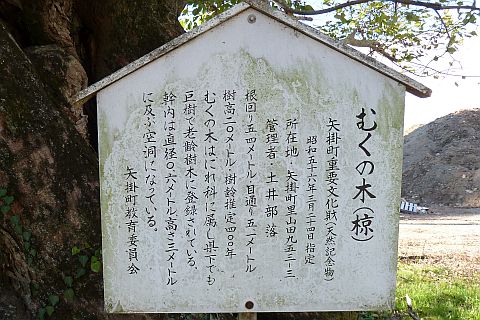 むくの木(椋)
矢掛町重要文化財(天然記念物)
昭和五十六年三月二十四日指定
所在地・矢掛町里山田九五三ー三
管理者・土井部落
根回り五.四メートル目通り五.二メートル
樹高二〇メートル樹齢推定四〇〇年
むくの木はにれ科に属し県下でも
巨樹で老齢樹木に登録されている。
幹内は直径〇.六メートル高さ三メートル
に及ぶ空洞になっている。
矢掛町教育委員会